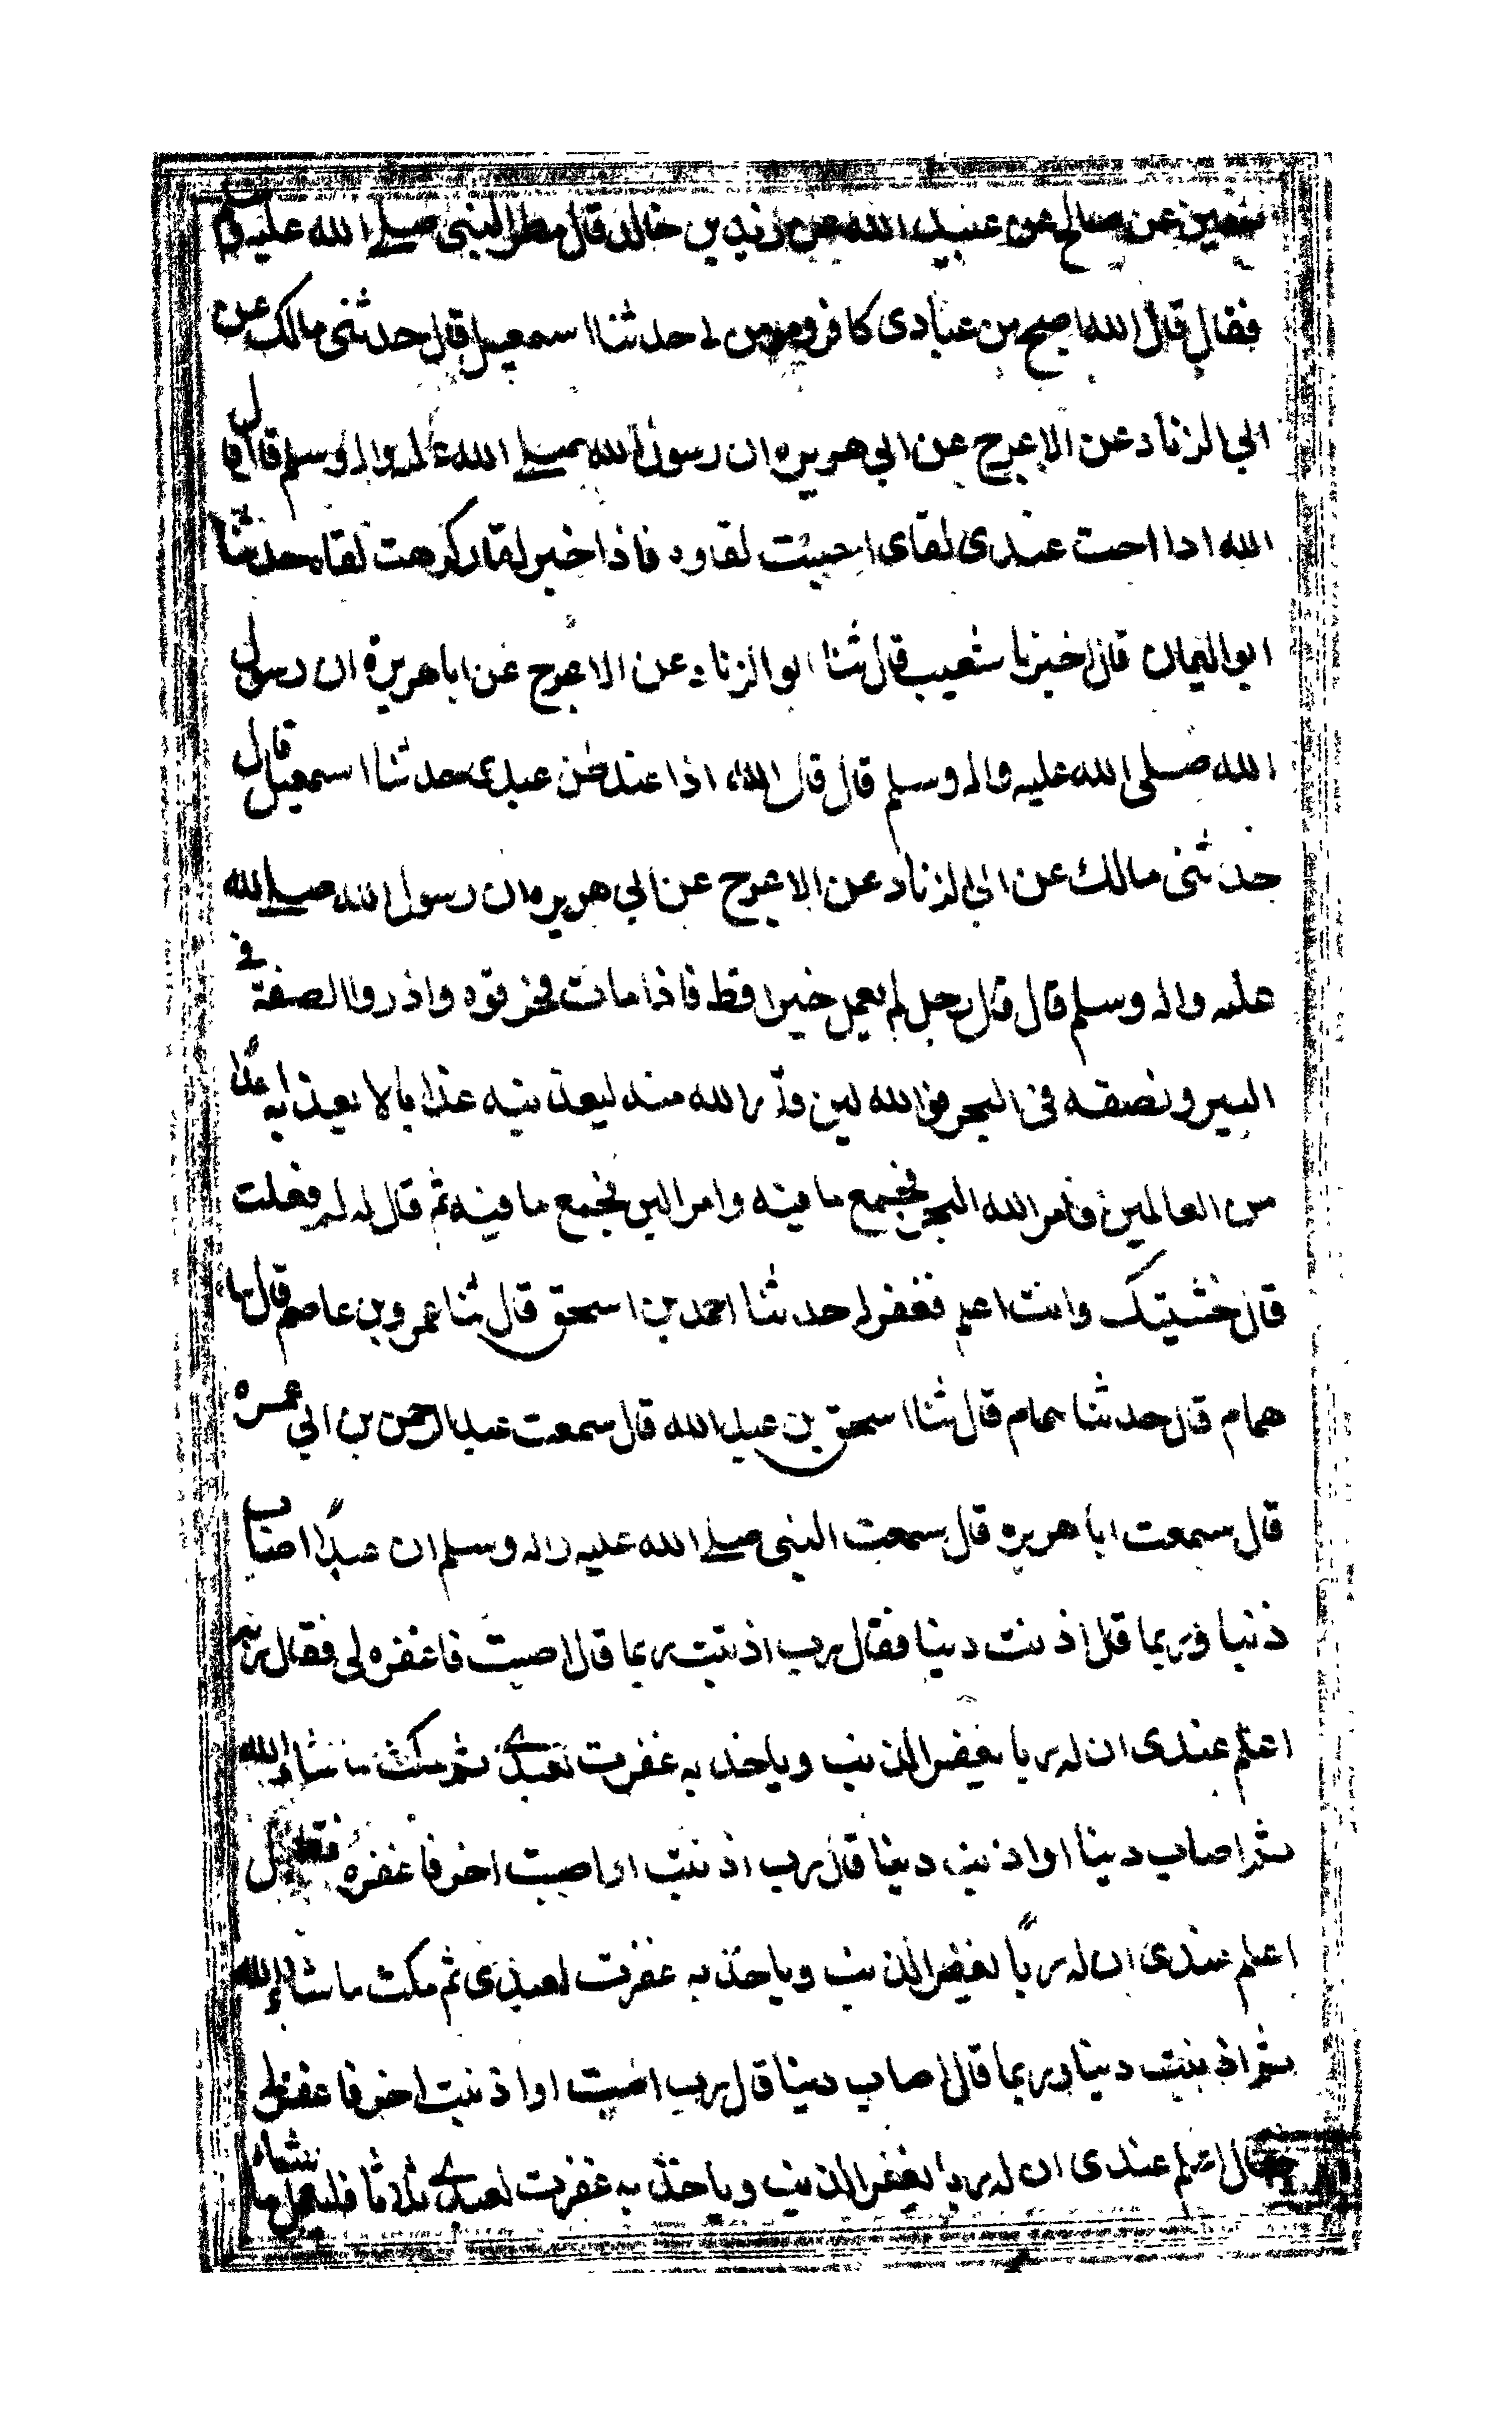 سفين عن صالح عن عبيد الله عن زيد بن خالد قال مطر النبي صلى الله عليه وسلم
فقال قال الله اصبح من عبادى كافر ومومن لى حدثنا اسمعيل قال حدثنى مالك عن
ابي الزناد عن الاعرج عن ابي هريره ان رسول الله صلى الله عليه واله وسلم قال قال
الله اذا احب عبدى لقاى احببت لقاوه فاذا لقاى كرهت لقاه حدثنا
ابو اليمان قال اخبرنا شعيب قال ثنا ابو الزناد عن الاعرج عن ابا هريرة ان رسول
الله صلى الله عليه واله وسلم قال قال الله اذا عند ظن عبدى حدثنا اسمعيل قال
حدثنى مالك عن ابي الزناد عن الاعرج عن ابي هريره ان رسول الله صلى الله
عليه واله وسلم قال قال رجل لم يعمل خيرا قط فاذا مات فحرقوه واذروا نصفة في
البر ونصفه فى البحر فوالله لين قدر الله منه ليعذبنيه عذابا لا يعذبه احدا
من العالمين فامر الله البحر فجمع ما فيه وامر البر فجمع ما فيه ثم قال له لم فعلت
قال خشيتك وانت اعلم فغفر له حدثنا احمد بن اسحق قال ثنا عمرو بن عاصم قال ثنا
همام قال حدثنا همام قال ثنا اسحق بن عبد الله قال سمعت عبد الرحمن بن ابي عمره
قال سمعت ابا هريره قال سمعت النبى صلى الله عليه واله وسلم ان عبدًا اصاب
ذنبا وربما قال اذنبت ذنبا فقال رب اذنبت ربما قال اصبت فاغفره لى فقال ربه
اعلم عبدى ان له ربا يغفر الذنب وياخذ به غفرت لعبدى ثم مكث ما شاء الله
ثم اصاب ذنبا او اذنب ذنبا قال رب اذنبت او اصبت اخر فاغفره فقال
اعلم عبدى ان له ربًا يغفر الذنب وياخذ به غفرت لعبدى ثم مكث ما شاء الله
ثم اذنب ذنبا وربما قال اصاب ذنبا قال رب اصبت او اذنبت اخر فاغفره لى
فقال اعلم عبدى ان له ربا يغفر الذنب وياخذ به غفرت لعبدى ثلاثا فليعمل ما شاء